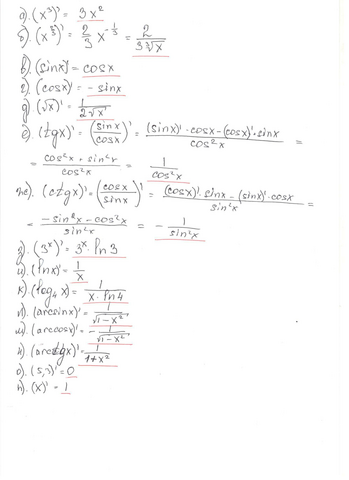 а). (x³)' = 3x²
б). (x^(2/3))' = 2/3 x^(-1/3) = 2/(3∛x)
в). (sinx)' = cosx
г). (cosx)' = -sinx
д) (√x)' = 1/(2√x)
е). (tgx)' = (sinx/cosx)' = ((sinx)'·cosx-(cosx)'·sinx)/cos²x =
= (cos²x + sin²x)/cos²x = 1/cos²x
же). (ctgx)' = (cosx/sinx)' = ((cosx)'·sinx - (sinx)'·cosx)/sin²x
= (-sin²x - cos²x)/sin²x = -1/sin²x
з). (3ˣ)' = 3ˣ·ln3
и). (lnx)' = 1/x
к). (log₄x)' = 1/(x·ln4)
л). (arcsinx)' = 1/√(1-x²)
м). (arccosx)' = -1/√(1-x²)
н). (arctgx)' = 1/(1+x²)
о). (5,7)' = 0
п). (x)' = 1